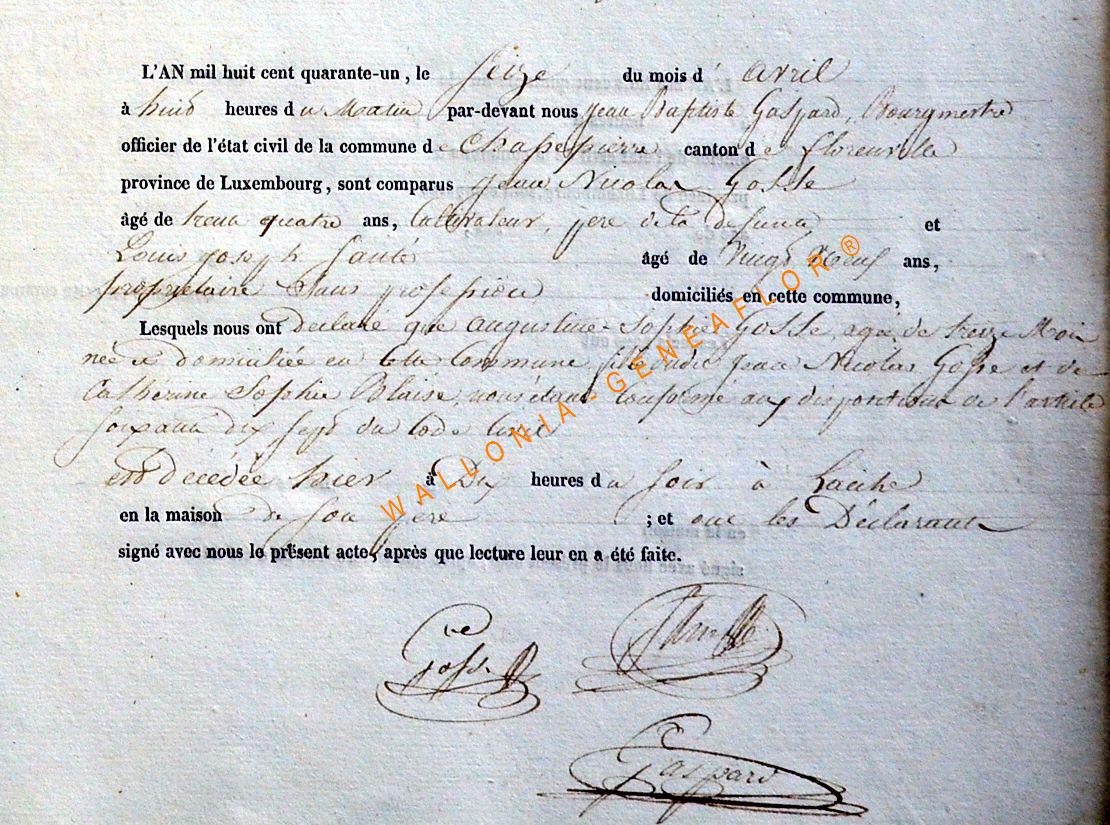 L'AN mil huit cent quarante-un, le Seize du mois d' avril
à huit heures du Matin par-devant nous Jean Baptiste Gaspard, Bourgmestre
officier de l'état civil de la commune de Chassepierre canton de florenville
province de Luxembourg, sont comparus Jean Nicolas Gosse
âgé de trente quatre ans, Cultivateur, père de la defunte et
Louis Joseph âgé de Vingt Neuf ans,
propriétaire Sans profession domiciliés en cette commune,
Lesquels nous ont déclaré que augustine-Sophie Gosse, agée de treize Mois
née et domiciliée en cette Commune fille dudit Jean Nicolas Gosse et de
Catherine Sophie Blaise, nous étant conformé aux dispositions de l'article
soixante dix sept du Code Civil
est décédée hier à Dix heures du soir à Laiche
en la maison de son père ; et ont les Déclarants
signé avec nous le présent acte, après que lecture leur en a été faite.
Gosse
Gaspard
WALLONIA-GENEAFLOR®